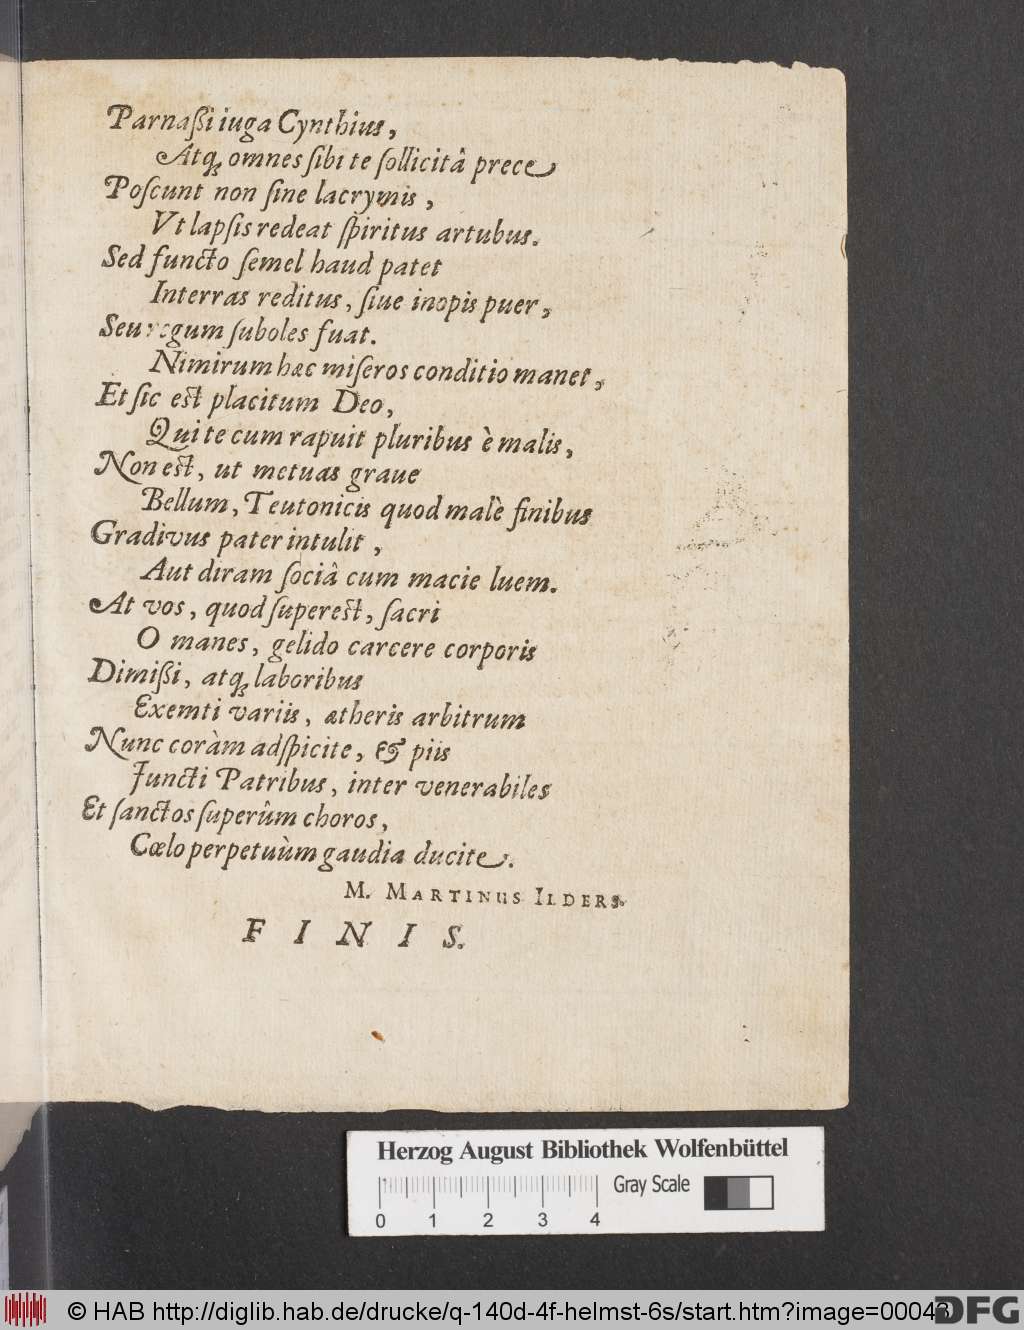 Parnaßi iuga Cynthius,
Atq́; omnes ſibi te ſollicitâ prece
Poſcunt non ſine lacrymis,
Vt lapſis redeat ſpiritus artubus.
Sed functo ſemel haud patet
Interras reditus, ſiue inopis puer,
Seu regum ſuboles fuat.
Nimirum hæc miſeros conditio manet,
Et ſic est placitum Deo,
Qui te cum rapuit pluribus è malis,
Non est, ut metuas graue
Bellum, Teutonicis quod malè finibus
Gradivus pater intulit,
Aut diram ſociâ cum macie luem.
At vos, quod ſuperest, ſacri
O manes, gelido carcere corporis
Dimißi, atq; laboribus
Exemti variis, ætheris arbitrum
Nunc coràm adſpicite, & piis
Juncti Patribus, inter venerabiles
Et ſanctos ſuperûm choros,
Cœlo perpetuùm gaudia ducite.
M. MARTINUS ILDERS.
FINIS.
Herzog August Bibliothek Wolfenbüttel
Gray Scale
0 1 2 3 4
© HAB http://diglib.hab.de/drucke/q-140d-4f-helmst-6s/start.htm?image=00043
DFG